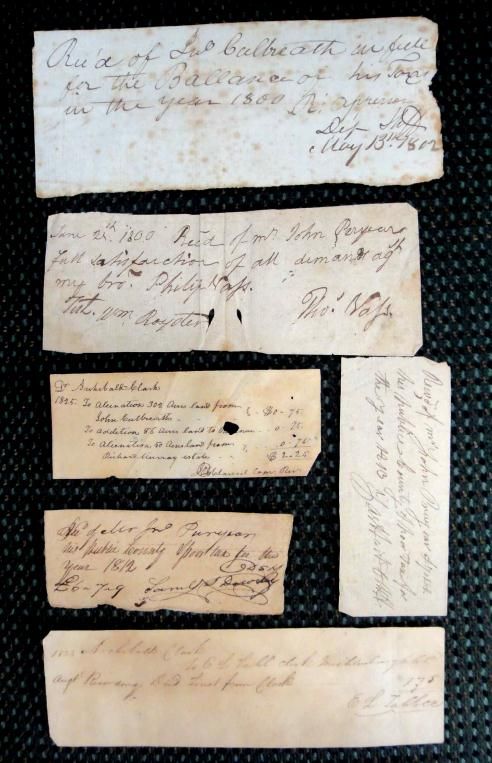 Rec'd of Jno Culbreath in full
for the Ballance of his Taxes
in the year 1800
Dep Shff
May 13th 1802
June 25th 1800 Rec'd of mr John Peryear
full satisfaction of all demands agst
my bro. Philip Vass.
Test. Wm Royster Thos Vass.
Dr Archibald Clark
1825. To Alienation 302 Acres land from
John Culbreath - $0-75
To addition 86 Acres land to - 0-75
To Alienation 50 Acres land from - 0-75
Richard Murray estate - $2-25
Rec'd of Mr Jno Puryear
his public County & poor tax for the
year 1812
£0-7-9 Saml
Recd of mr John Puryear
his public County & poor tax for
the year
Archibald Clark
To E L Tabb clk Mecklenburg
Augt Recording Deed Trust from Clark 175
E L Tabb cc